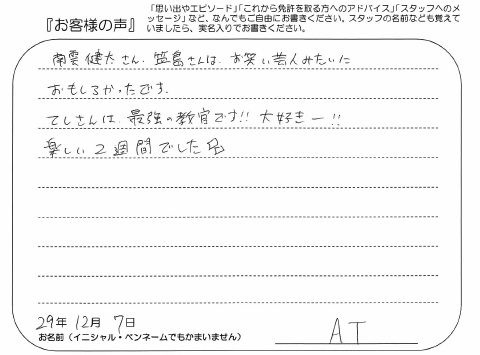 『お客様の声』
「思い出やエピソード」「これから免許を取る方へのアドバイス」「スタッフへのメ
ッセージ」など、なんでもご自由にお書きください。スタッフの名前なども覚えて
いましたら、実名入りでお書きください。
南雲健太さん、笠島さんは、お笑い芸人みたいに
おもしろかったです。
てしさんは、最強の教官です!! 大好きー!!
楽しい2週間でした
29年 12月 7日
お名前(イニシャル・ペンネームでもかまいません)
AT